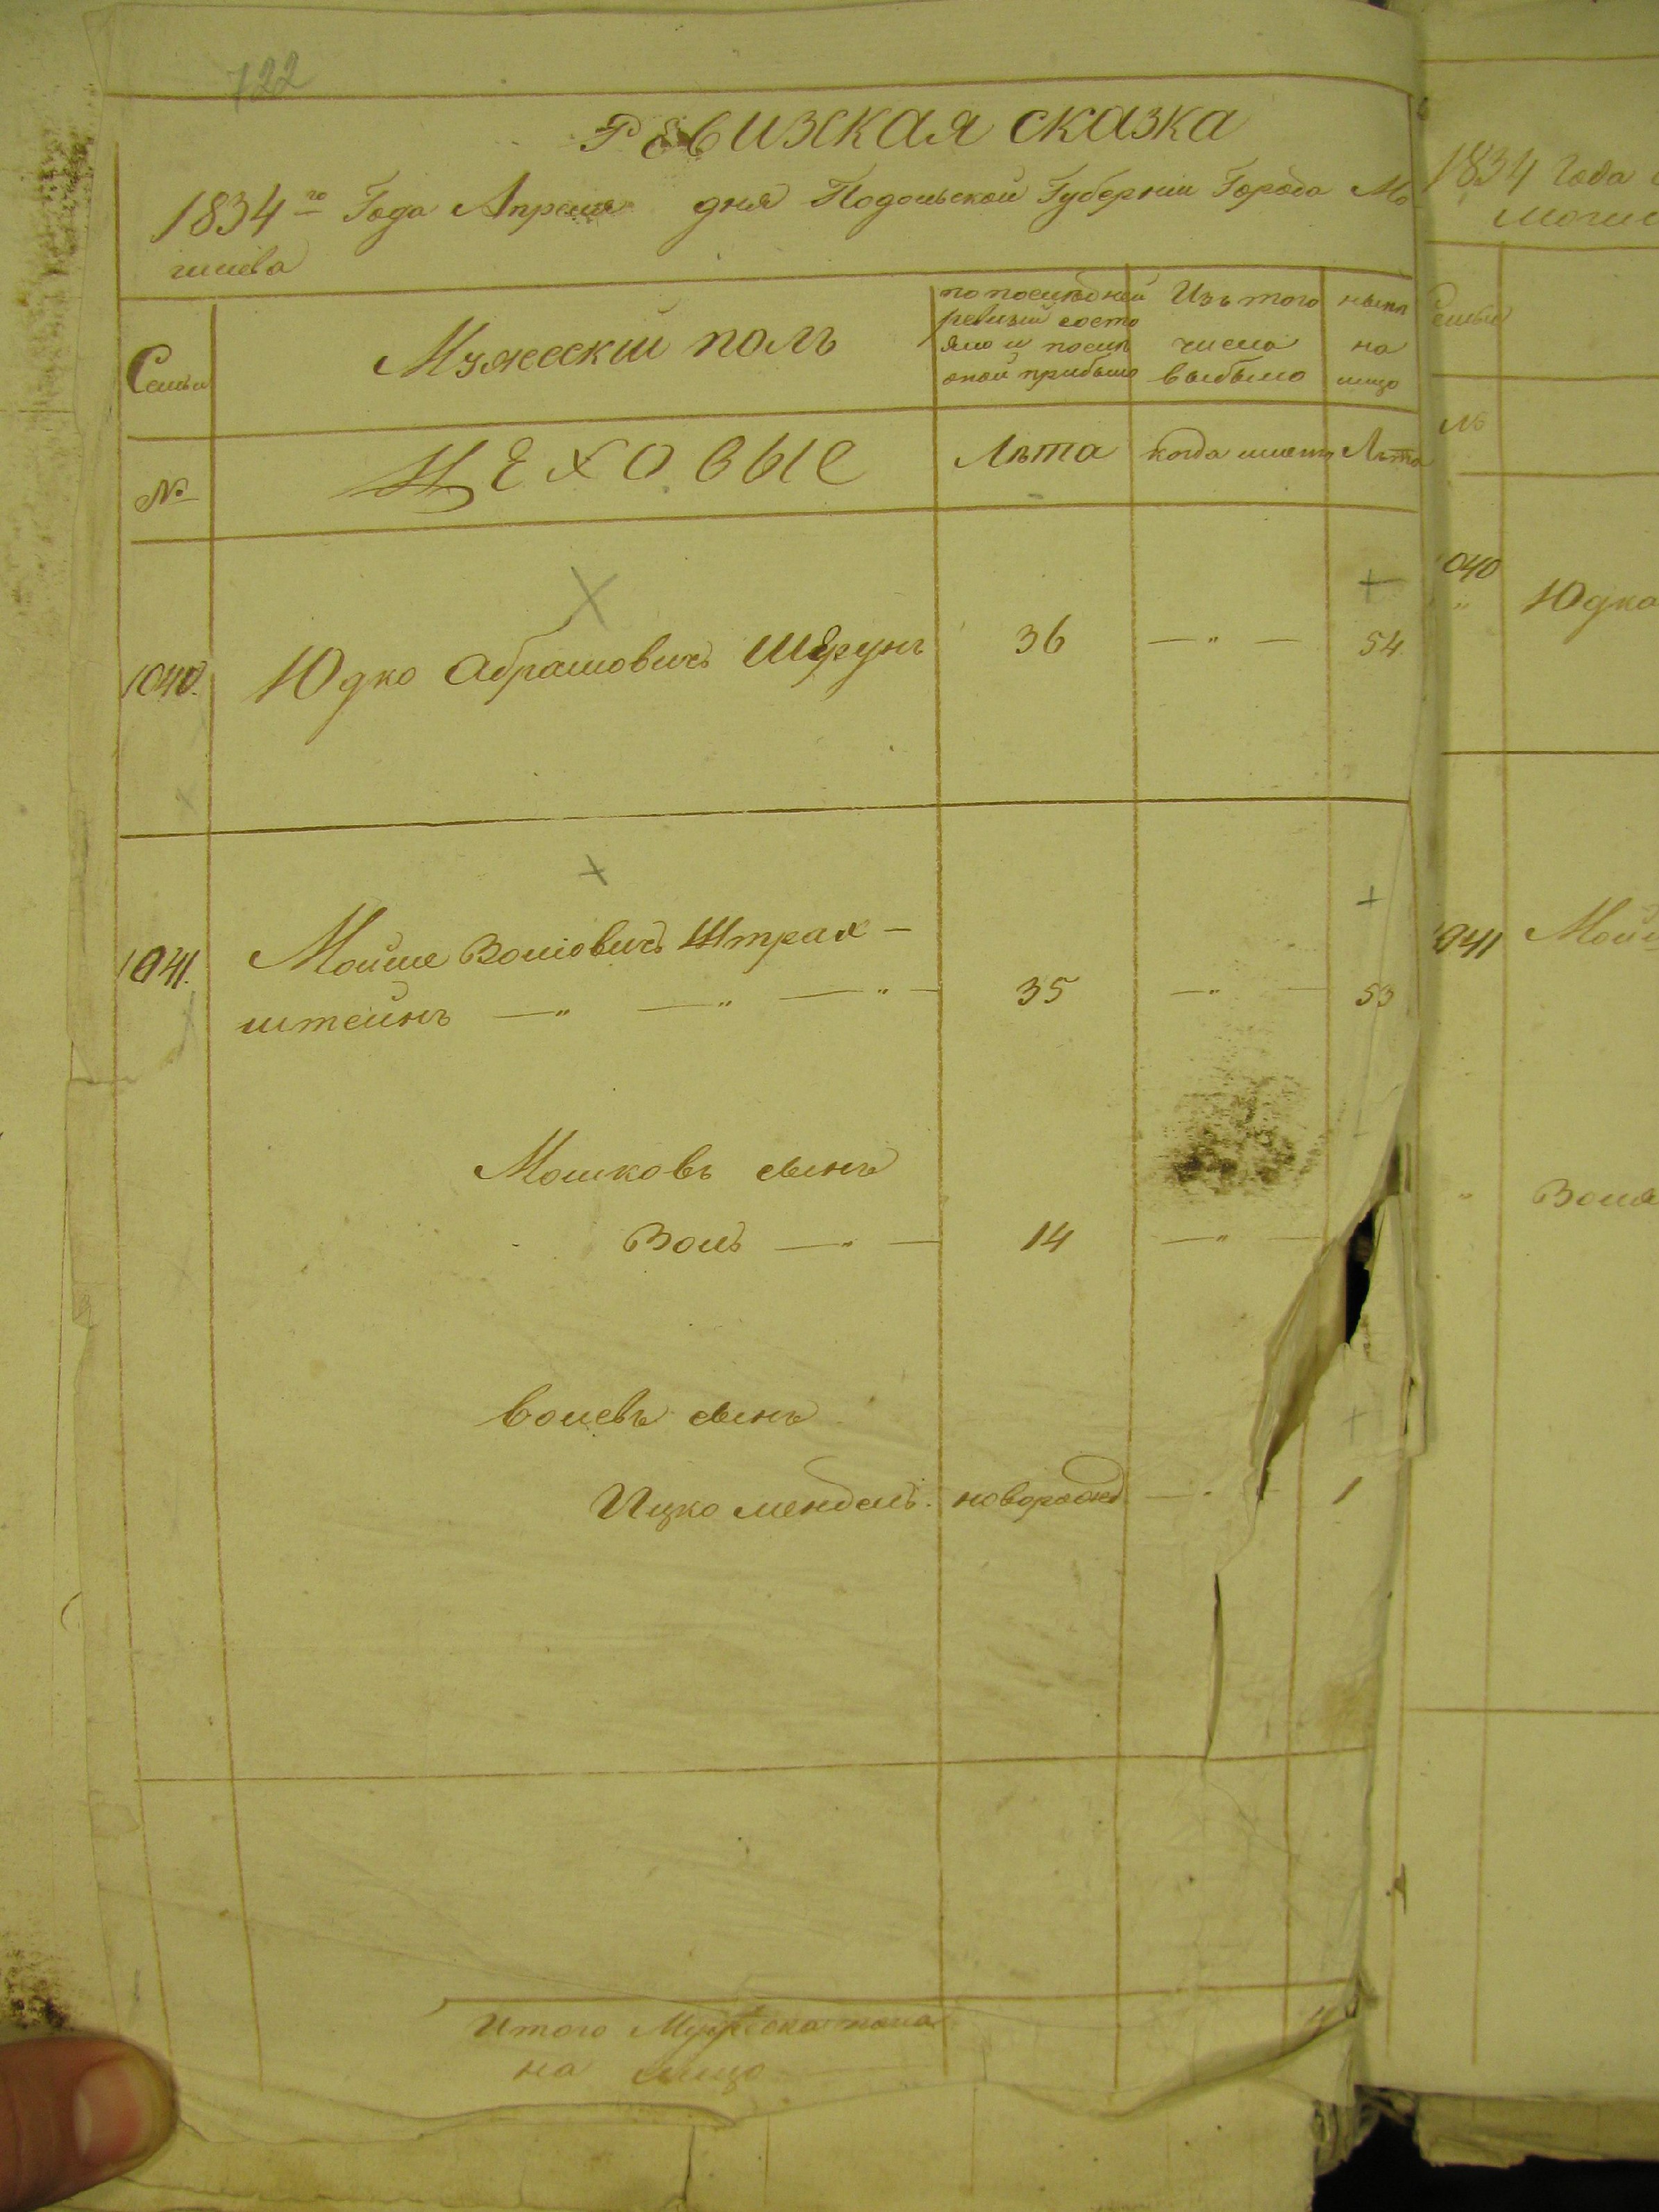 122
Ревизкая сказка
1834го Года Апреля дня Подольской Губерніи Города Мо
гилева
Семьи
Мужескій полъ
по последней
ревизіи состо
яло и после
оной прибыло
Изъ того
числа
выбыло
ныне
на
лицо
№
Цеховые
Лѣта
когда имено
Лѣта
1040.
Юдко Абрамовичъ
36
54
1041.
Мойше Волiовичъ Штрах-
штейнъ
35
53
Мошковъ сынъ
Воль
14
Волевъ сынъ
Ицко мендель
новорожд
1
Итого Мужеска пола
на лицо
1834 Года
Могил
Семьи
№
1040
Юдко
1041
Мойш
Воля